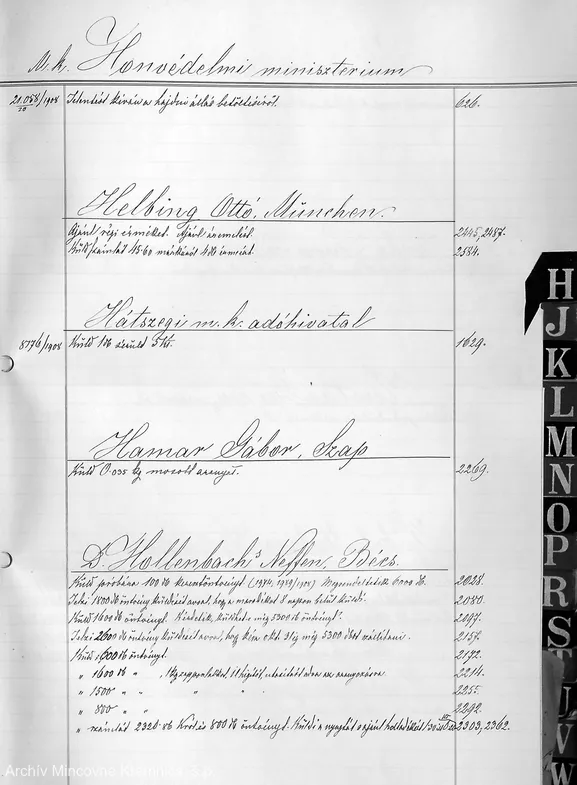 M. k. Honvédelmi miniszterium
21.058/1908 Jelentést kiván a hajdui állás betöltéséről. 626.
20
Helbing Ottó, München.
Ajánl régi érméket. Ajánl éremelést. 2445, 2487.
Küld számlát 15.60 márkáról 4 db éremért. 2584.
Hátszegi m. k. adóhivatal
8176/1908 Küld 1 db sérült 5 kr. 1629.
Hamar Gábor, Szap
Küld 0.035 kg mosott aranyat. 2269.
D. Hollenbach's Neffen, Bécs.
Küld próbára 100 db keresztöntvényt (1974, 1989/908) Megrendeltetett 6000 db. 2028.
Jelzi 1800 db öntvény küldését avval, hogy a maradékot 8 napon belül küldi. 2080.
Küld 1600 db öntvényt. Kérdezik, küldhet-e még 5300 db öntvényt. 2097.
Jelzi 2600 db öntvény küldését avval, hogy f. hó okt. 31ig még 5300 dbot szállitani. 2157.
Küld 1600 db öntvényt. 2172.
" 1600 db " 2214.
" 1500 " " " " 2255.
" 800 " " 2292.
" számlát 2320.86 Król és 800 db öntvényt. Küldi a nyugtát 2303, 2362.
H
J
K
L
M
N
O
P
R
S
T
U
V
W
Archív Mincovne Kremnica, š.p.